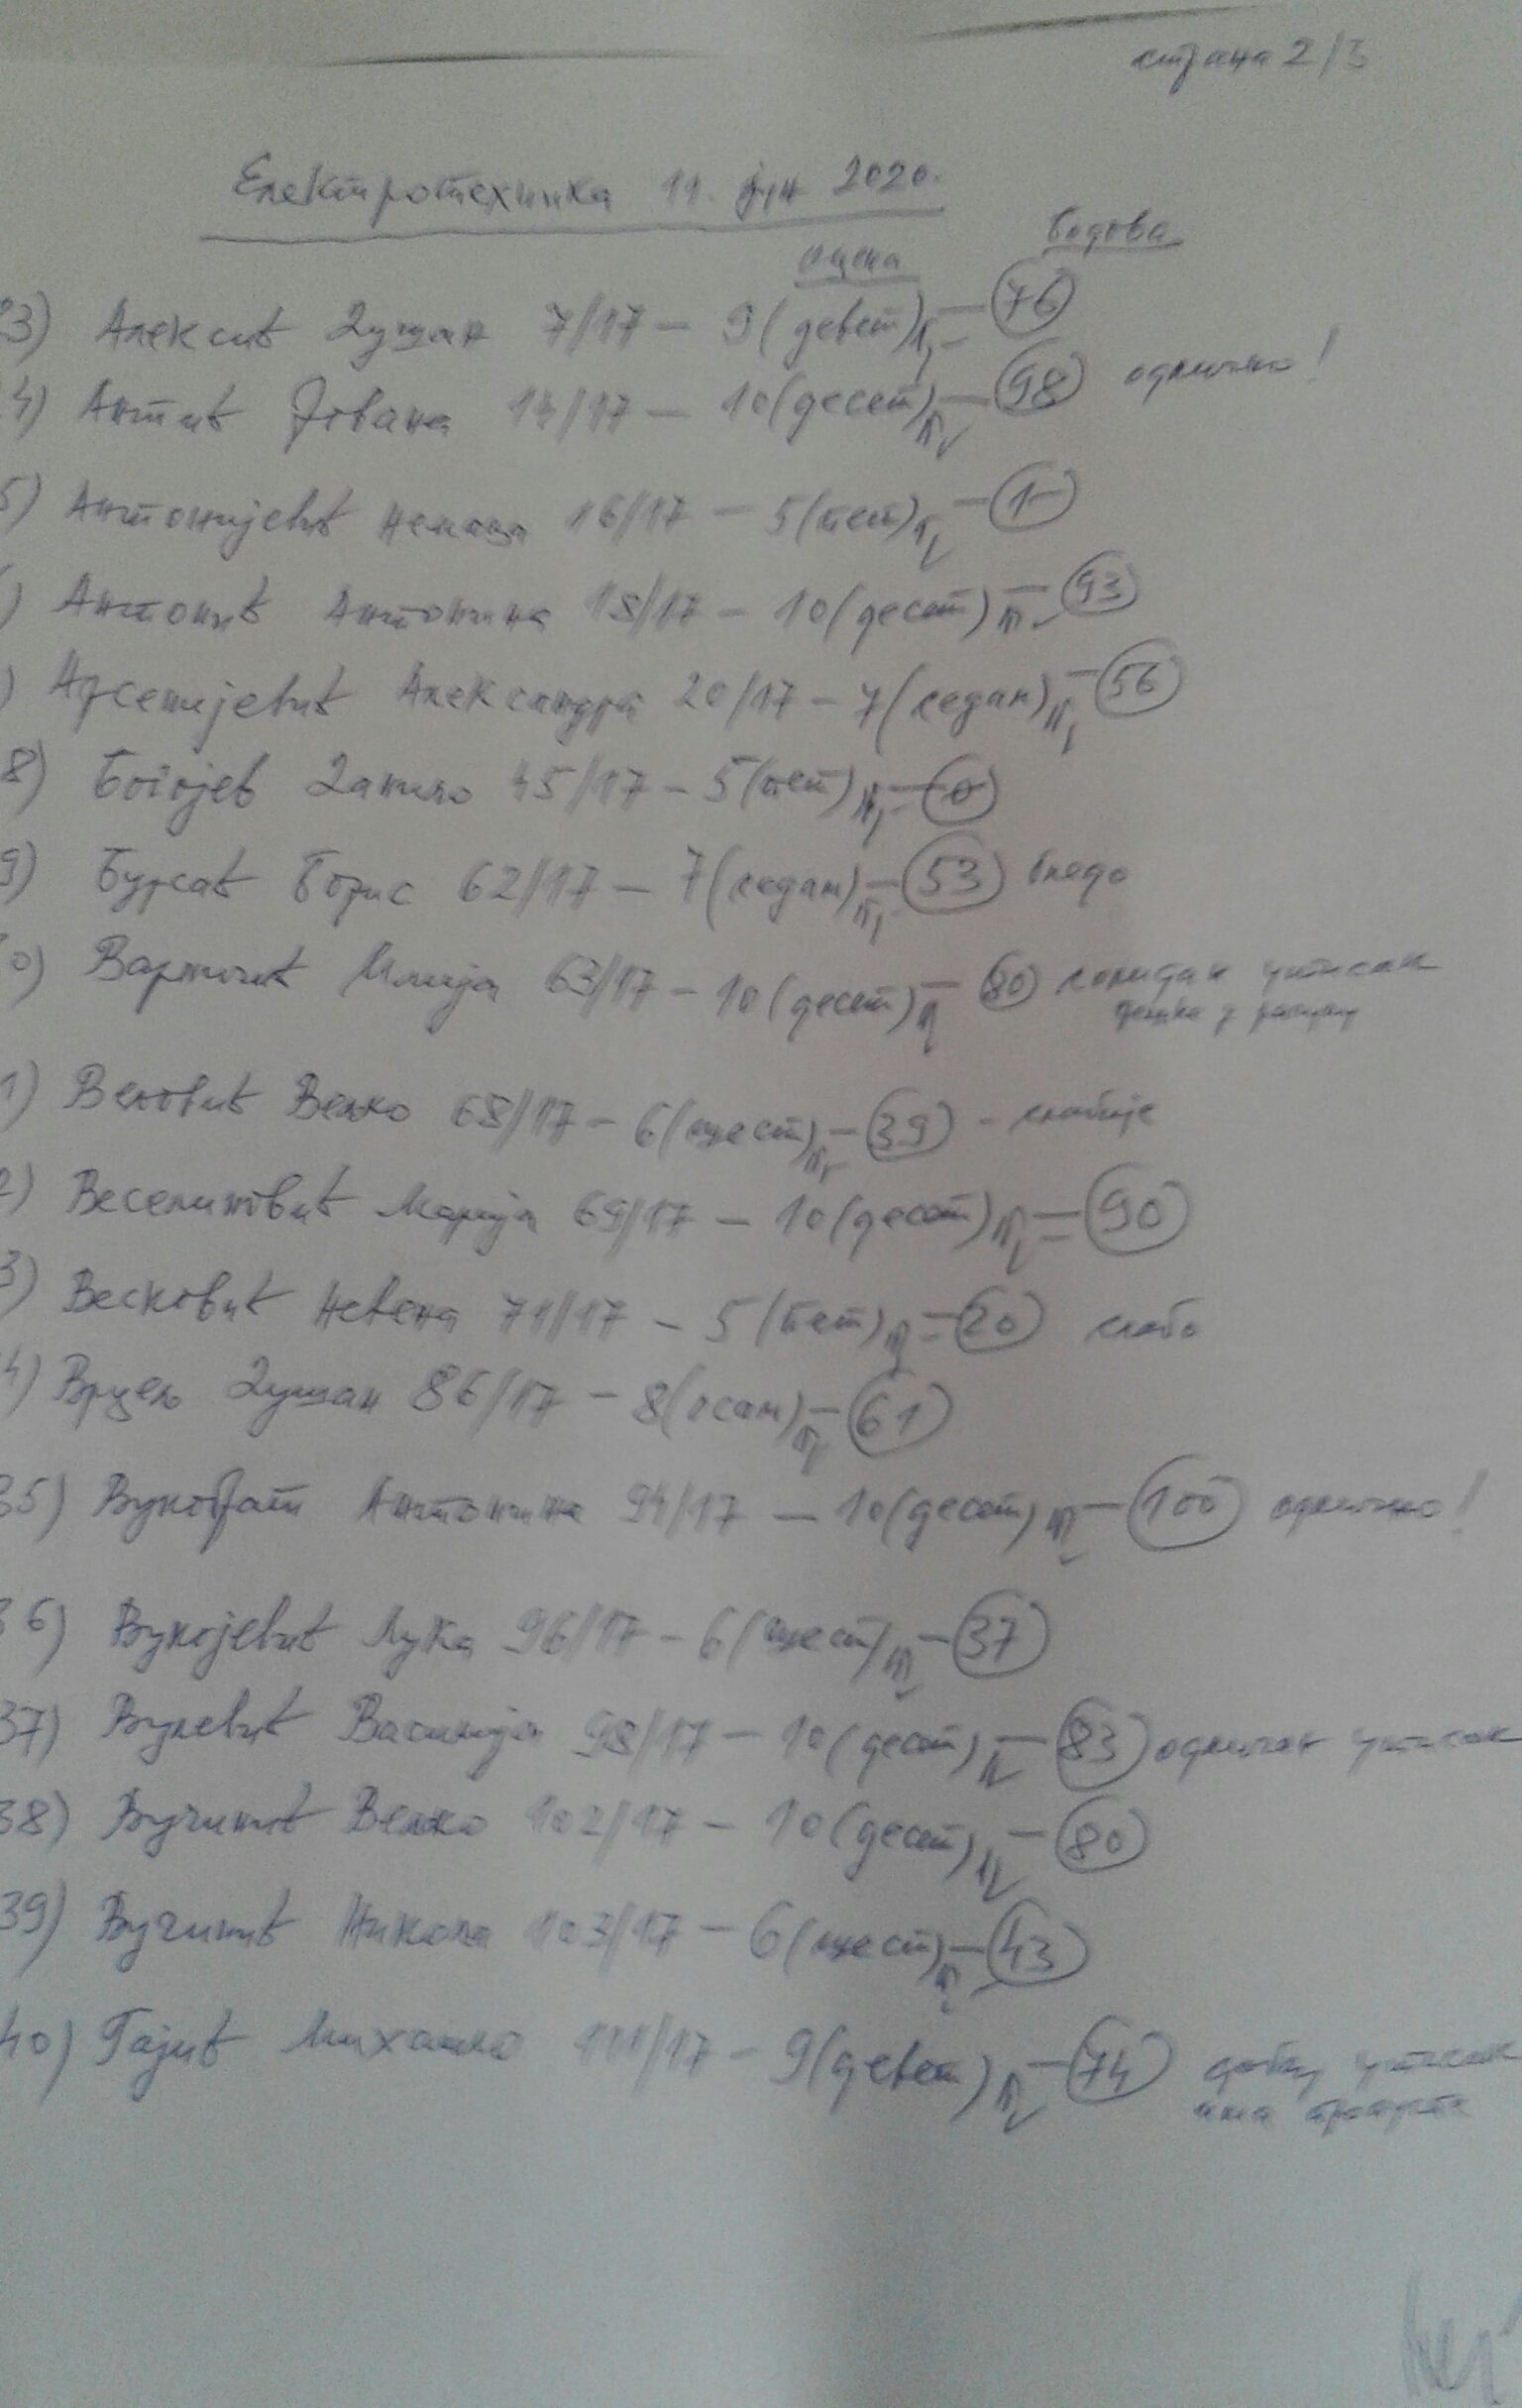 страна 2/3
Електротехника 11. јун 2020.
оцена бодова
23) Алексић Душан 7/17 – 9 (девет) – 76
24) Антић Јована 14/17 – 10 (десет) – 98 одлично!
5) Антонијевић Немања 16/17 – 5 (пет) – 1
) Антонић Антонина 18/17 – 10 (десет) – 93
) Арсенијевић Александра 20/17 – 7 (седам) – 56
8) Богојев Данило 45/17 – 5 (пет) – 0
9) Бурсаћ Борис 62/17 – 7 (седам) – 53 бледо
0) Варничић Илија 63/17 – 10 (десет) – 80 солидан утисак
1) Веловић Вељко 68/17 – 6 (шест) – 39 - слабије
2) Веселиновић Марија 69/17 – 10 (десет) – 90
3) Весковић Невена 71/17 – 5 (пет) – 20 слабо
4) Врцељ Душан 86/17 – 8 (осам) – 61
35) Вукобрат Антонина 94/17 – 10 (десет) – 100 одлично!
36) Вукојевић Лука 96/17 – 6 (шест) – 37
37) Вулевић Василија 98/17 – 10 (десет) – 83 одличан утисак
38) Вучинић Вељко 102/17 – 10 (десет) – 80
39) Вучинић Никола 103/17 – 6 (шест) – 43
40) Гајић Михаило 111/17 – 9 (девет) – 74 утисак
има